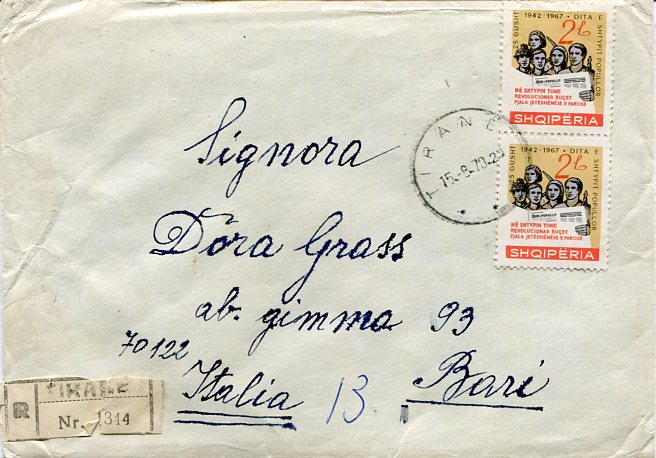 25 GUSHT 1942-1967 • DITA E SHTYPIT POPULLOR
2L
NË SHTYPIN TONË
REVOLUCIONAR BUÇET
FJALA JETËDHËNËSE E PARTISË
SHQIPËRIA
25 GUSHT 1942-1967 • DITA E SHTYPIT POPULLOR
2L
NË SHTYPIN TONË
REVOLUCIONAR BUÇET
FJALA JETËDHËNËSE E PARTISË
SHQIPËRIA
TIRANE
15.-8.70.-2
Signora
Dóra Grass
ab. gimma 93
70122 Bari
Italia 13.
R TIRANE
Nr. 1344